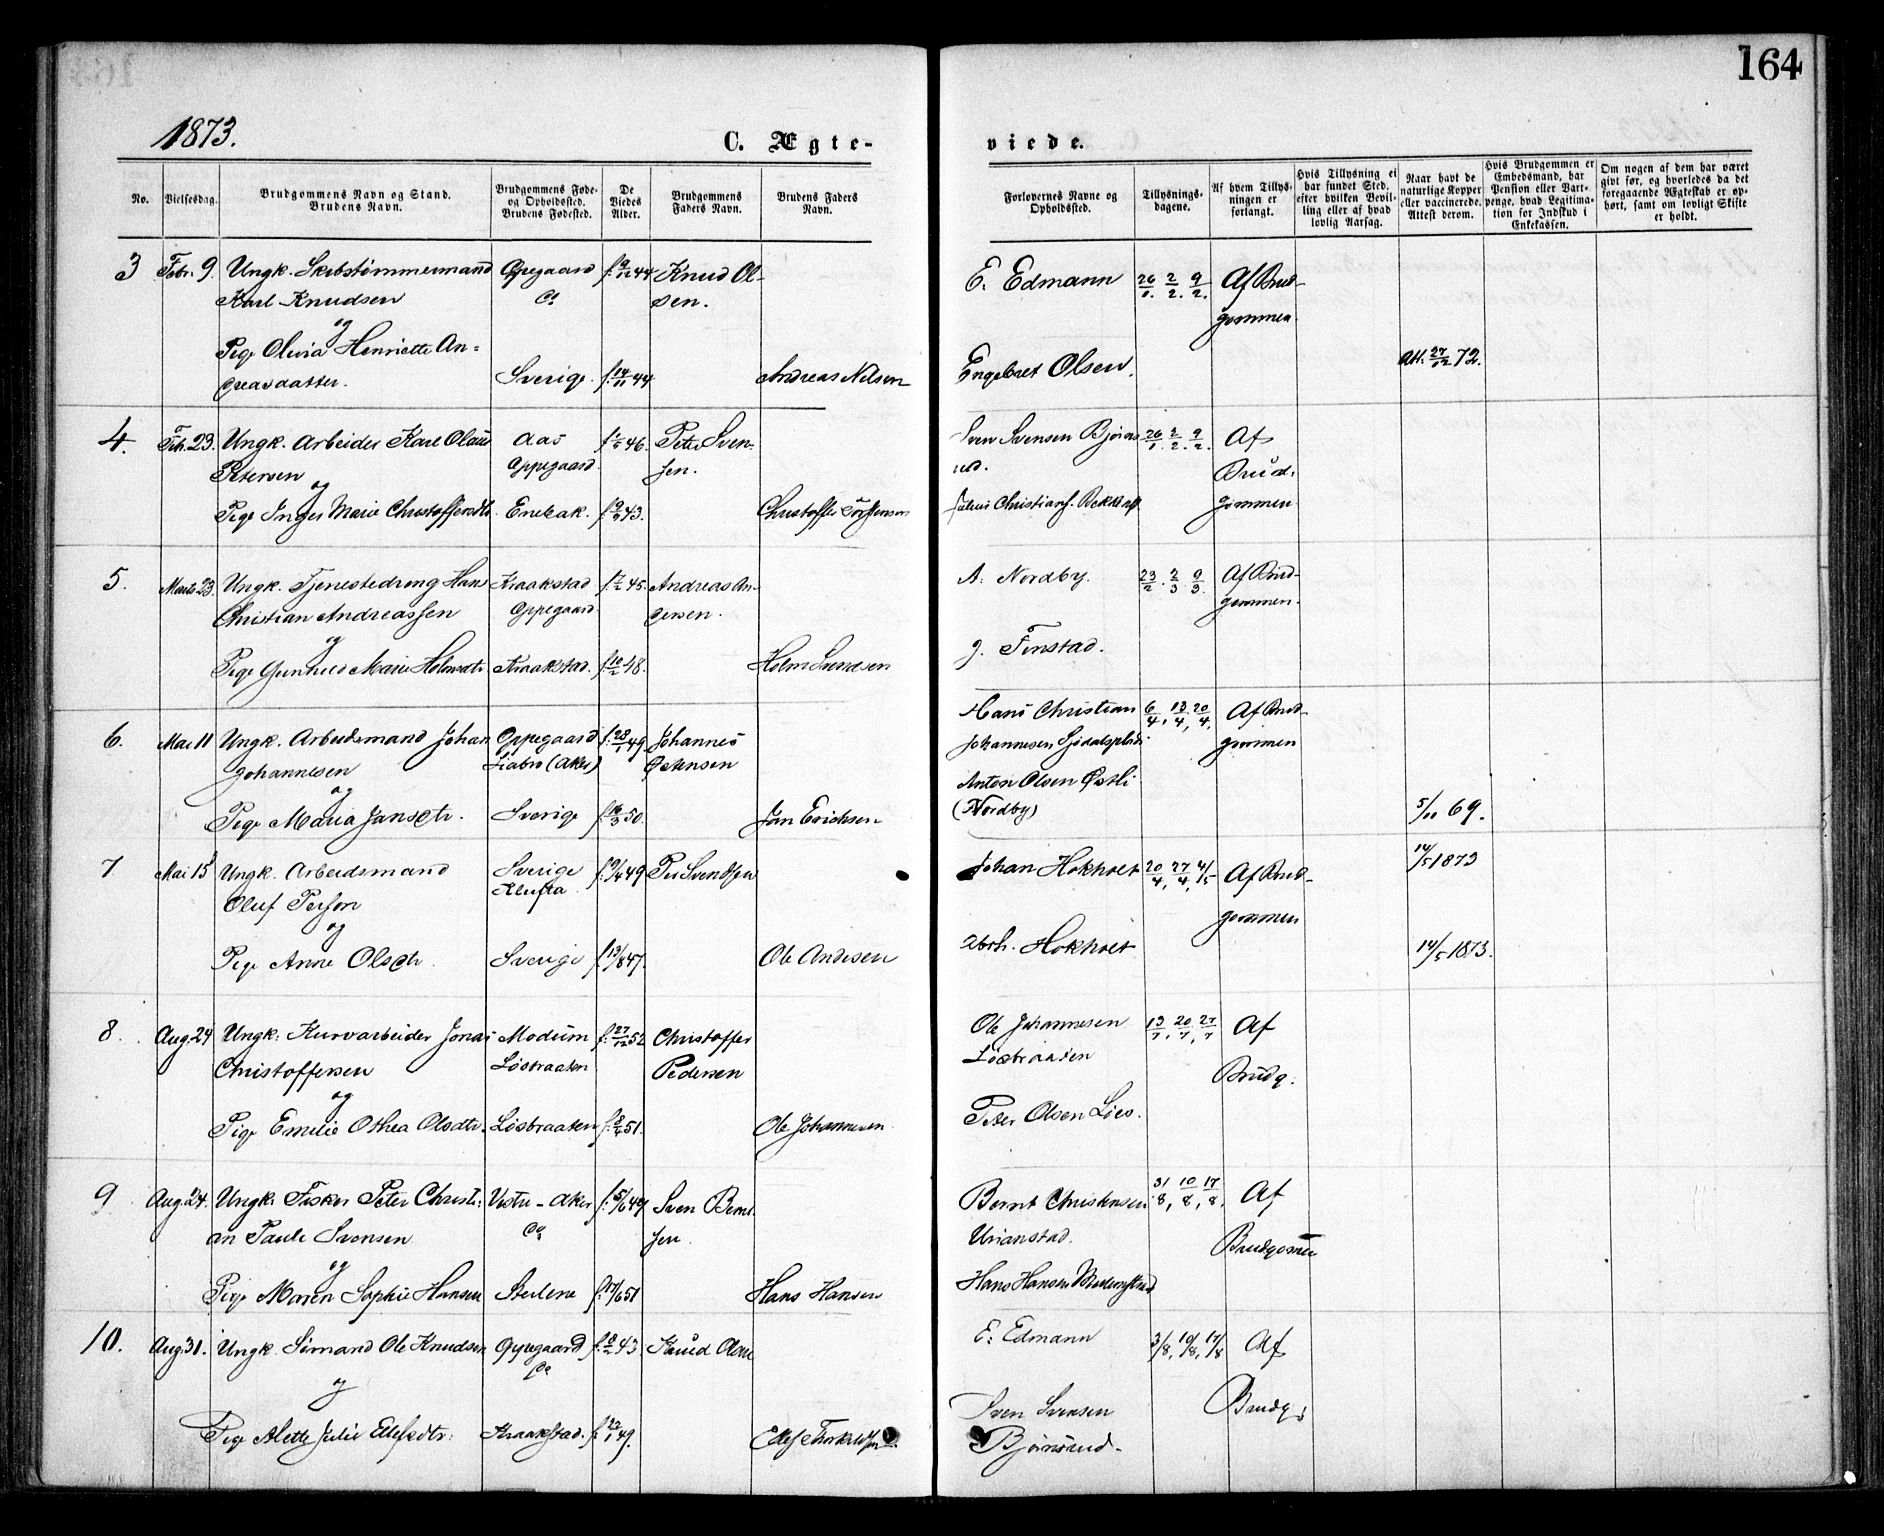 164
1873.
C. Ægte-
viede.
No.
Vielsesdag.
Brudgommens Navn og Stand.
Brudens Navn.
Brudgommens Føde-
og Opholdssted.
Brudens Fødested.
De
Viedes
Alder.
Brudgommens
Faders Navn.
Brudens Faders
Navn.
Forlovernes Navne og
Opholdssted.
Tillysnings-
dagene.
Af hvem Tillys-
ningen er
forlangt.
Hvis Tillysning ei
har fundet Sted,
efter hvilken Bevil-
ling eller af hvad
lovlig Aarsag.
Naar havt de
naturlige Kopper
eller vaccinerede.
Attest derom.
Hvis Brudgommen er
Embedsmand, har
Pension eller Vart-
penge, hvad Legitima-
tion for Indskud i
Enkekassen.
Om nogen af dem har været
givt før, og hvorledes da det
foregaaende Ægteskab er op-
hørt, samt om lovligt Skifte
er holdt.
3 Febr. 9. Ungk. Skibstømmermand Oppegaard f. 9/12 44 Knud Ol-
Karl Knudsen do sen.
og
Pige Olivia Henriette An-
dreasdatter. Sverige. f. 14/11 44 Andreas Nilsen
E. Edmann 26/1. 2/2. 9/2. Af Brud-
gommen.
Engebret Olsen. Att. 27/12 72.
4. Feb. 23. Ungk. Arbeider Karl Olaus Aas 46. Peter Sven-
Petersen Oppegaard. sen.
og
Pige Inger Marie Christoffersdtr. Enebak. 43. Christoffer
Sven Svensen Bjørns- 26/1. 2/2. 9/2. Af
rud. Brud-
Julius Christians. gommen
5. Marts 23. Ungk. Tjenestedreng Hans Kraakstad 45. Andreas An-
Christian Andreassen Oppegaard dersen.
og
Pige Gunhild Marie Holmsdtr. Kraakstad. f. 10/2 48. Holm Svendsen
A. Nordby. 23/2. 2/3 9/3. Af Brud-
gommen.
J. Finstad.
6. Mai 11 Ungk. Arbeidsmand Johan Oppegaard f. 28/1 49. Johannes
Johannesen Liabro (Aker) Ostensen
og
Pige Maria Jansdtr. Sverige f. 16/3 50. Jan Ericksen
Hans Christian 6/4, 13/4, 20/4, Af Brud-
Johannesen gommen
Anton Olsen Østli
(Nordby) 5/11 69.
7 Mai 15 Ungk. Arbeidsmand Sverige 49 Per Svendsen
Oluf Persson Klufta
og
Pige Anne Olsdtr. Sverige f. 13/8 47. Ole Andersen
Johan Hokholt 20/4, 27/4, 4/5 Af Brud- 14/5 1873
gommen
Hokholt 14/5 1873.
8. Aug. 24 Ungk. Kurvarbeider Jonas Modum f. 27/12 52 Christoffer
Christoffersen Løsbraaten Pedersen
og
Pige Emilie Othea Olsdtr. Løsbraaten 51. Ole Johannesen
Ole Johannesen 13/7, 20/7, 27/7 Af
Løsbraaten Brudg.
Peter Olsen Løes.
9 Aug. 24. Ungk. Fisker Peter Christi- Vestre-Aker f. 5/6 49 Sven Bernt-
an Paule Svensen do sen.
og
Pige Maren Sophie Hansen f. 17/6 51 Hans Hansen
Bernt Christensen 31/8, 10/8, 17/8, Af
Urianstad. Brudgommen
Hans Hansen
10. Aug. 31. Ungk. Sømand Ole Knudsen Oppegaard 43. Knud Olsen
do
og
Pige Alette Julie Ellefsdtr. Kraakstad. f. 22/1 49. Ellef Thorkildsen
E. Edmann 3/8, 10/8, 17/8 Af
Sven Svensen Brudg.
Bjørnsrud.